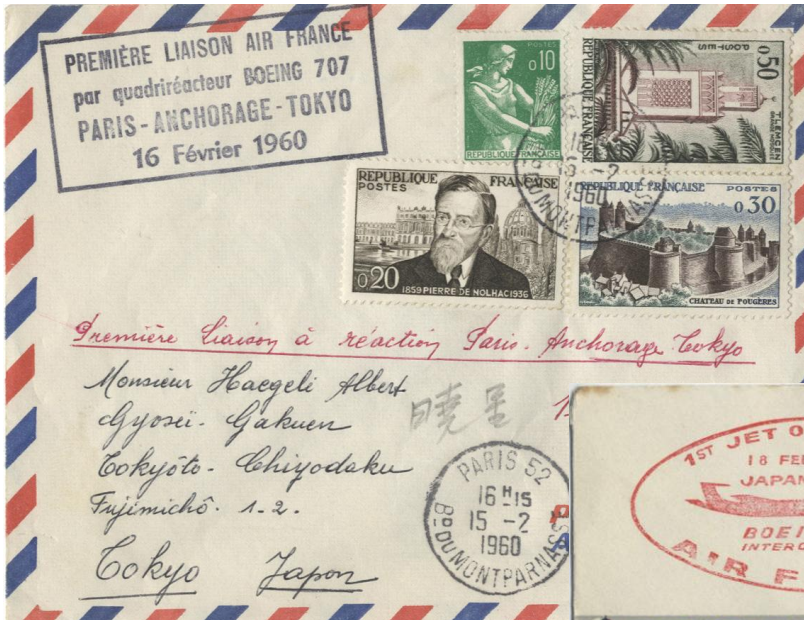 PREMIÈRE LIAISON AIR FRANCE
par quadriréacteur BOEING 707
PARIS-ANCHORAGE-TOKYO
16 Février 1960
POSTES
0,10
REPUBLIQUE FRANÇAISE
POSTES
0,50
REPUBLIQUE FRANÇAISE
TLEMCEN
REPUBLIQUE FRANÇAISE
POSTES
0,20
1859 PIERRE DE NOLHAC 1936
REPUBLIQUE FRANÇAISE POSTES
0,30
CHATEAU DE FOUGÈRES
-2
1960
Bd DU MONTPARNASSE
Première liaison à réaction Paris-Anchorage-Tokyo
Monsieur Haegeli Albert
Gyoseï-Gakuen
暁星
Tokyôto-Chiyodaku
Fujimichô. 1-2.
Tokyo Japon
PARIS 52
16H15
15 -2
1960
Bd DU MONTPARNASSE
1ST JET O
18 FE
JAPAN
BOEI
INTERC
AIR F